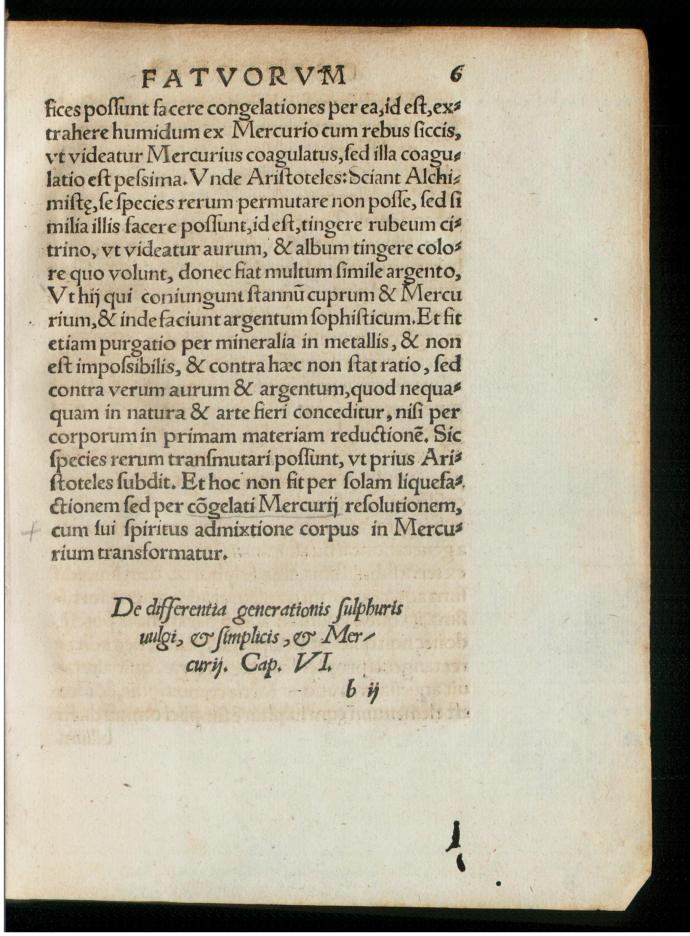 FATVORVM 6
fices poſſunt facere congelationes per ea, id eſt, ex⸗
trahere humidum ex Mercurio cum rebus ſiccis,
vt videatur Mercurius coagulatus, ſed illa coagu⸗
latio eſt peſsima. Vnde Ariſtoteles: Sciant Alchi⸗
miſtę, ſe ſpecies rerum permutare non poſſe, ſed ſi
milia illis facere poſſunt, id eſt, tingere rubeum ci⸗
trino, vt videatur aurum, & album tingere colo⸗
re quo volunt, donec fiat multum ſimile argento,
Vt hij qui coniungunt ſtannū cuprum & Mercu
rium, & inde faciunt argentum ſophiſticum. Et fit
etiam purgatio per mineralia in metallis, & non
eſt impoſsibilis, & contra hæc non ſtat ratio, ſed
contra verum aurum & argentum, quod nequa⸗
quam in natura & arte fieri conceditur, niſi per
corporum in primam materiam reductionē. Sic
ſpecies rerum tranſmutari poſſunt, vt prius Ari⸗
ſtoteles ſubdit. Et hoc non fit per ſolam liquefa⸗
ctionem ſed per cōgelati Mercurij reſolutionem,
cum ſui ſpiritus admixtione corpus in Mercu⸗
rium transformatur.
De differentia generationis ſulphuris
uulgi, & ſimplicis, & Mer⸗
curij. Cap. VI.
b ij